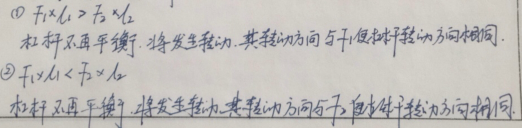 ① F₁×l₁ > F₂×l₂
杠杆不再平衡.将发生转动.其转动方向与F₁使杠杆转动方向相同.
② F₁×l₁ < F₂×l₂
杠杆不再平衡.将发生转动.其转动方向与F₂使杠杆转动方向相同.